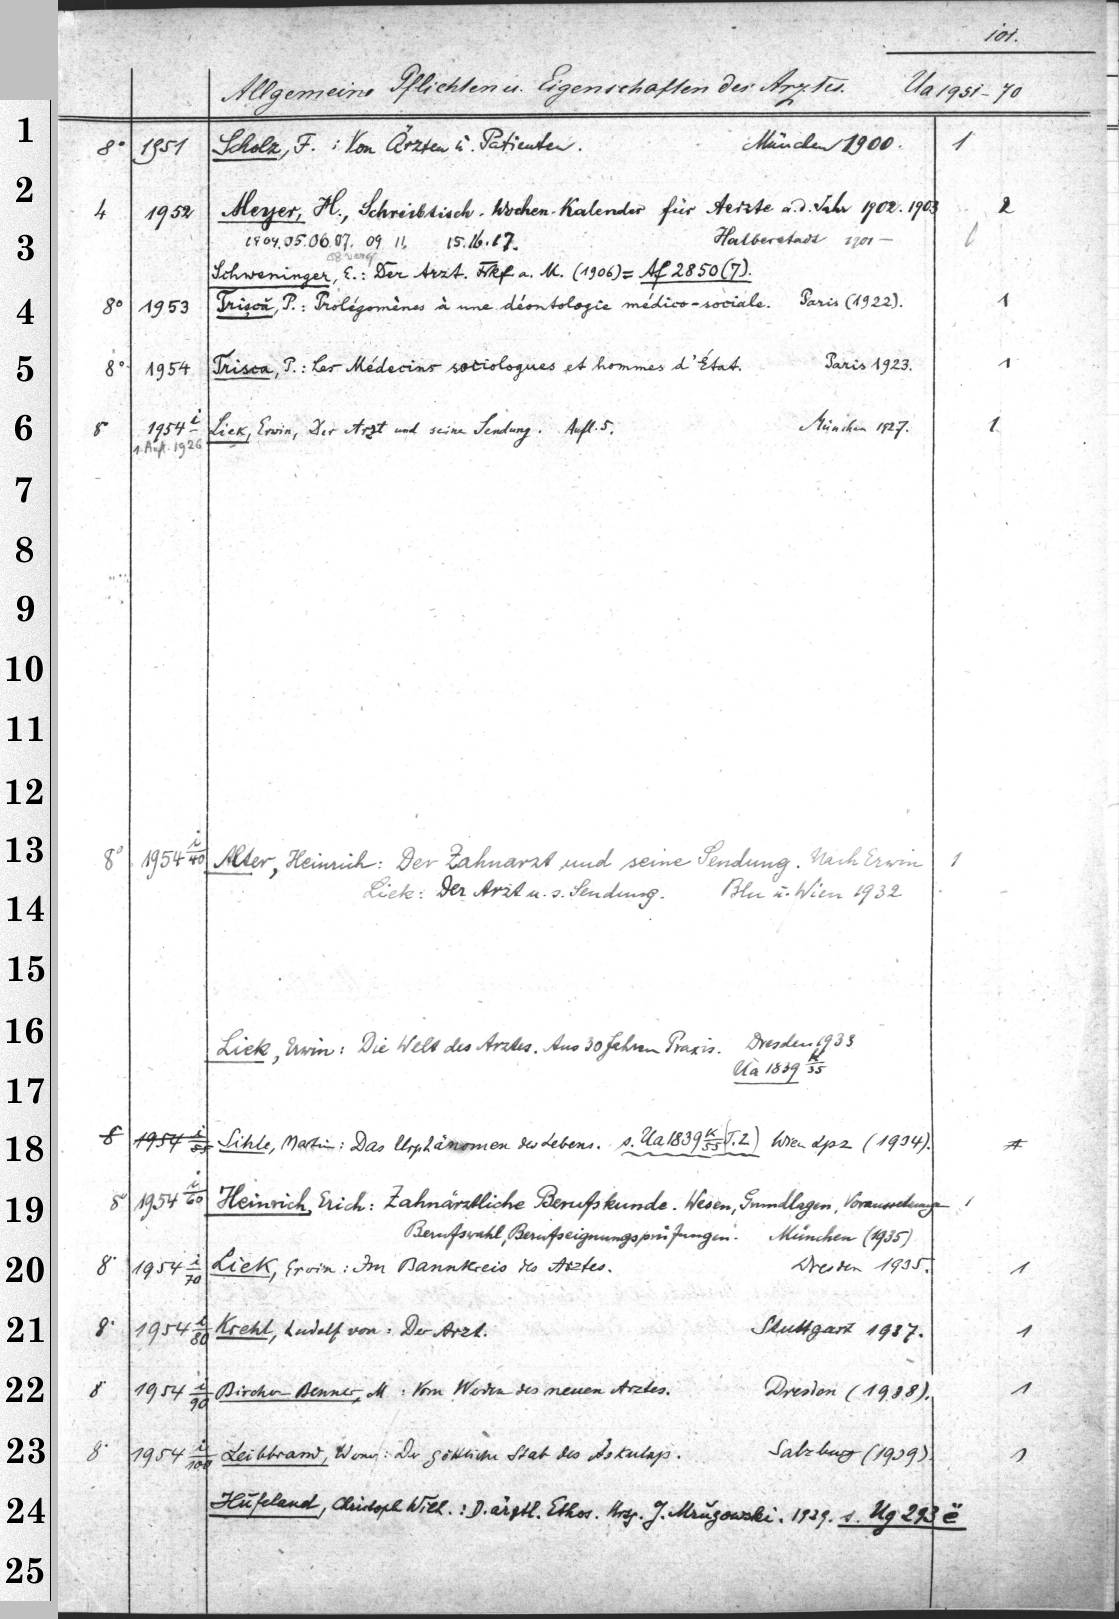 101.
Allgemeine Pflichten u. Eigenschaften des Arztes. Ua 1951-70
1 8° 1951 Scholz, F. : Von Ärzten u. Patienten. München 1900. 1
2 4 1952 Meyer, H., Schreibtisch-Wochen-Kalender für Aerzte a.d. Jahr 1902. 1903 2
3 1904.05.06.07. 09 11, 15.16.17. Halberstadt 1901-
Schweninger, E.: Der Arzt. Frkf a. M. (1906) = Af 2850(7).
4 8° 1953 Trisca, P.: Prolégomènes à une déontologie médico-sociale. Paris (1922). 1
5 8° 1954 Trisca, P.: Les Médecins sociologues et hommes d'État. Paris 1923. 1
6 8° 1954 i Liek, Erwin, Der Arzt und seine Sendung. Aufl. 5. München 1927. 1
1. Aufl. 1926
7
8
9
10
11
12
13 8° 1954 i/40 Alter, Heinrich: Der Zahnarzt und seine Sendung. Nach Erwin 1
14 Liek: Der Arzt u. s. Sendung. Bln u. Wien 1932
15
16 Liek, Erwin: Die Welt des Arztes. Aus 30 Jahren Praxis. Dresden 1933
17 Ua 1839 k/35
18 8 1954 i/55 Sihle, Martin: Das Urphänomen des Lebens. s. Ua 1839 k/55 (T.2) Wien Lpz (1934).
19 8° 1954 i/60 Heinrich, Erich: Zahnärztliche Berufskunde. Wesen, Grundlagen, Voraussetzung 1
Berufswahl, Berufseignungsprüfungen. München (1935)
20 8° 1954 i/70 Liek, Erwin: Im Bannkreis des Arztes. Dresden 1935. 1
21 8° 1954 i/80 Krehl, Ludolf von: Der Arzt. Stuttgart 1937. 1
22 8° 1954 i/90 Bircher Benner, M : Vom Werden des neuen Arztes. Dresden (1938). 1
23 8° 1954 i/100 Leibbrand, Werner: Der göttliche Stab des Äskulap. Salzburg (1939). 1
24 Hufeland, Christoph Wilh. : D. ärztl. Ethos. Hrsg. J. Mrugowski. 1939. s. Ug 293 ë
25